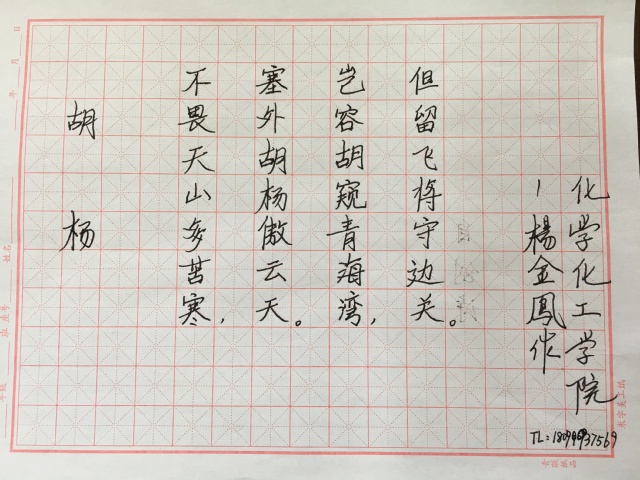 胡杨
不畏天山多苦寒，
塞外胡杨傲云天。
岂容胡窥青海湾，
但留飞将守边关。
—楊金鳳作
化学化工学院
TL:
年 月 日
姓名
米字美工纸